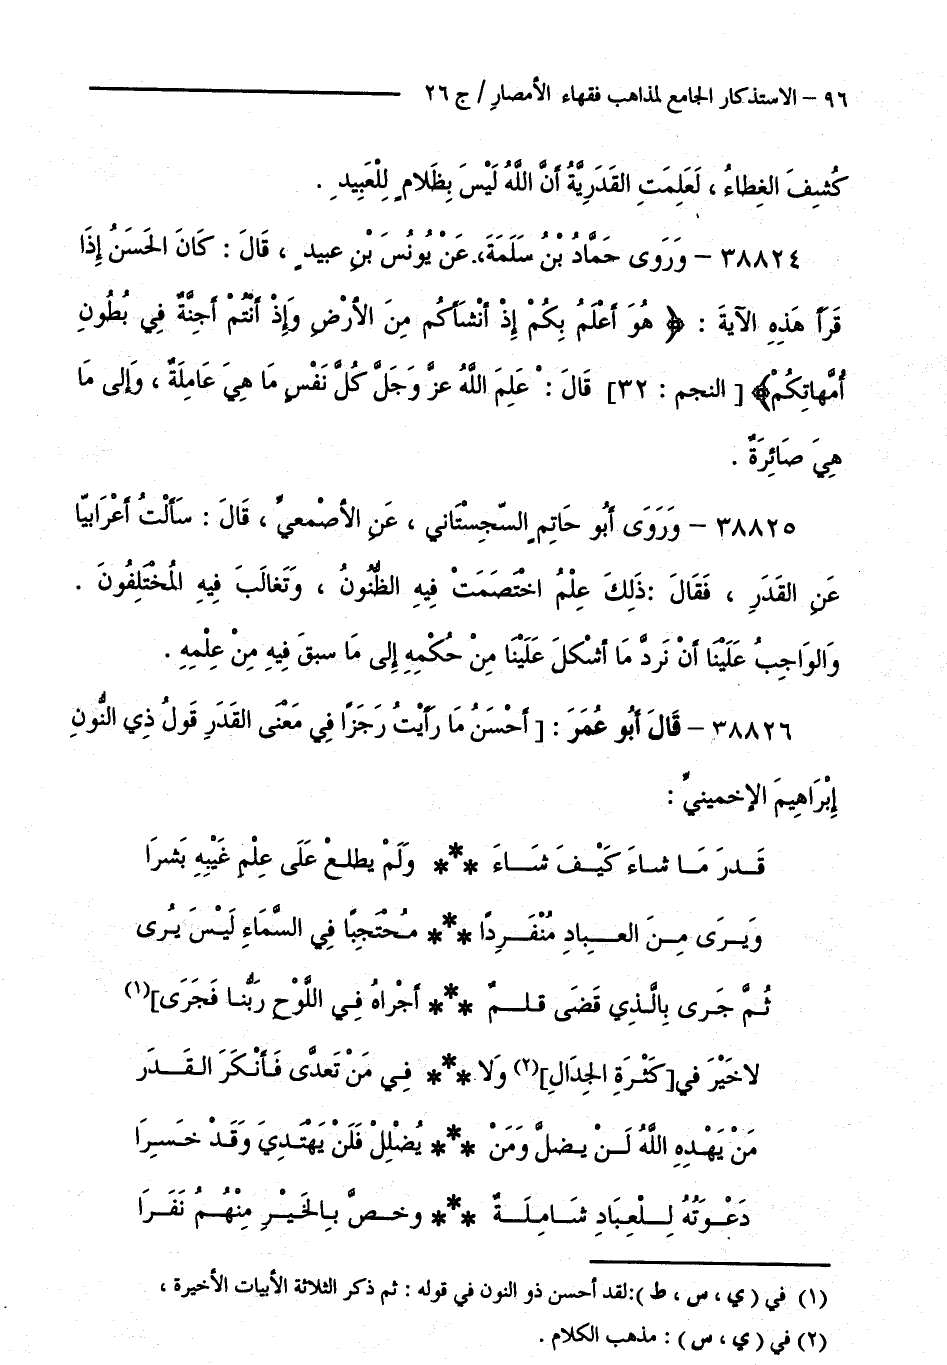 ٩٦ – الاستذكار الجامع لمذاهب فقهاء الأمصار / ج ٢٦
كُشِفَ الغِطاءُ ، لَعَلِمَتِ القَدَرِيَّةُ أَنَّ اللَّهُ لَيْسَ بِظَلامٍ لِلْعَبِيدِ .
٣٨٨٢٤ – وَرَوَى حَمَّادُ بْنُ سَلَمَةَ، عَنْ يُونُسَ بْنِ عبيدٍ ، قَالَ : كَانَ الحَسَنُ إِذَا
قَرَأَ هَذِهِ الآيةَ : ﴿ هُوَ أَعْلَمُ بِكُمْ إِذْ أَنْشَأَكُم مِنَ الأَرْضِ وَإِذْ أَنْتُمْ أجِنَّةٌ فِي بُطُونِ
أُمَّهاتِكُمْ﴾ [ النجم : ٣٢] قَالَ : عَلِمَ اللَّهُ عزَّ وَجَلَّ كُلَّ نَفْسٍ مَا هِيَ عَامِلَةٌ ، وَإلى مَا
هِيَ صَائِرَةٌ .
٣٨٨٢٥ – وَرَوَى أَبُو حَاتِمٍ السّجِسْتَاني ، عَنِ الأصْمعيِّ ، قَالَ : سَأَلْتُ أعْرَابيّا
عَنِ القَدَرِ ، فَقَالَ :ذَلِكَ عِلْمُ اخْتَصَمَتْ فِيهِ الظُّنُونُ ، وَتَغالَبَ فِيهِ المُخْتَلِفُونَ .
وَالوَاجِبُ عَلَيْنَا أَنْ نَردَّ مَا أشْكلَ عَلَيْنَا مِنْ حُكْمِهِ إِلى مَا سبقَ فِيهِ مِنْ عِلْمِهِ .
٣٨٨٢٦ – قَالَ أَبُو عُمَرَ : [ أحْسَنُ مَا رَأَيْتُ رَجَزًا فِي مَعْنَى القَدَرِ قَولُ ذِي النُّونِ
إِبْرَاهِيمَ الإخمينيِّ :
قَـدرَ مَـا شاءَ كَيْـفَ شَـاءَ *** وَلَمْ يطلعْ عَلَى عِلْمِ غَيْبِهِ بَشرَا
وَيـرَى مِـنَ العـبادِ مُنْفَـرِدًا *** مـحْتَجِبًا فِي السَّمَاءِ لَيْسَ يُرى
ثُمَّ جَرى بِالَّـذِي قَضَى قلـمٌ *** أجْراهُ فِـي اللَّوْحِ رَبُّنا فَجَرَى](١)
لاخَيْرَ في[كَثْرَةِ الجِدَالِ](٢) وَلا *** فِـي مَنْ تَعدَّى فَأنْكَرَ القَـدَر
مَنْ يَهْدِهِ اللَّهُ لَـنْ يضلَّ وَمَنْ *** يُضْلِلْ فَلَنْ يَهْتَـدِيَ وَقَدْ خَسِرَا
دَعْـوَتُهُ لِـلْعِبَادِ شَـامِلَـةٌ *** وخـصَّ بِـالخَيْـرِ مِنْهُـمُ نَفَـرَا
(١) في ( ي ، س ، ط ):لقد أحسن ذو النون في قوله : ثم ذكر الثلاثة الأبيات الأخيرة ،
(٢) في ( ي ، س ) : مذهب الكلام .